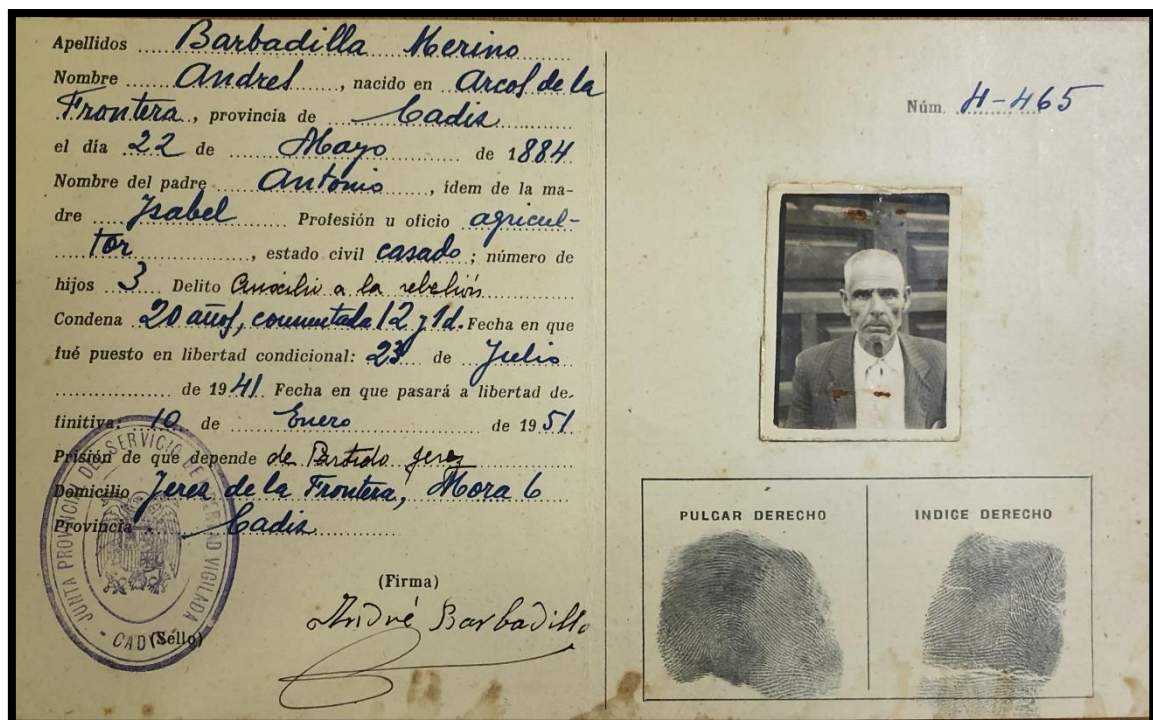 Apellidos Barbadilla Merino
Nombre Andres, nacido en Arcos de la
Frontera, provincia de Cadiz
el día 22 de Mayo de 1884
Nombre del padre Antonio, idem de la ma-
dre Ysabel Profesión u oficio agricul-
tor, estado civil casado; número de
hijos 3 Delito Auxilio a la rebelión
Condena 20 años, conmutada 12 y 1d. Fecha en que
fué puesto en libertad condicional: 23 de Julio
de 1941 Fecha en que pasará a libertad de-
finitiva: 10 de Enero de 1951
Prisión de que depende de Partido Jerez
Domicilio Jerez de la Frontera, Mora 6
Provincia Cadiz
(Firma)
André Barbadilla
(Sello)
JUNTA PROVINCIAL DEL SERVICIO DE LIBERTAD VIGILADA
- CADIZ -
Núm. H-465
PULGAR DERECHO
INDICE DERECHO